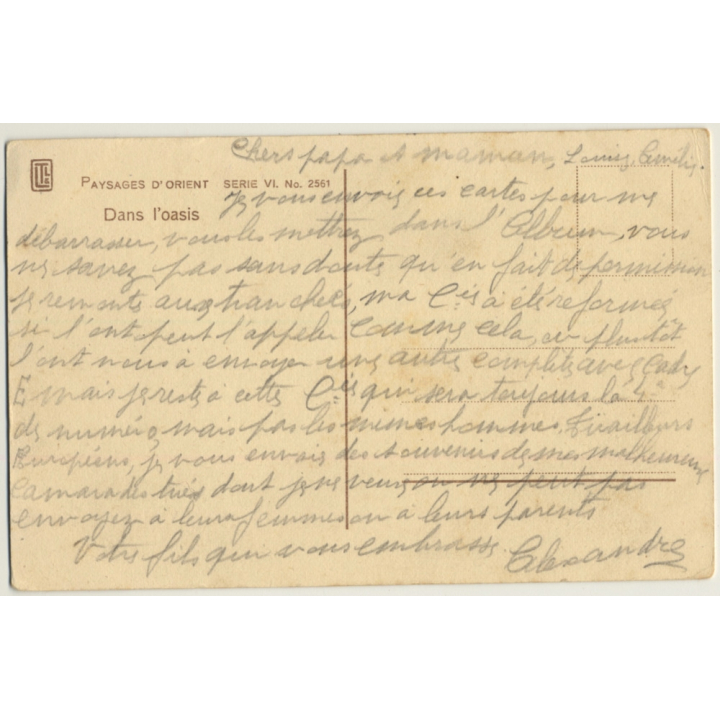 LTL&
PAYSAGES D'ORIENT SERIE VI. No. 2561
Dans l'oasis
Chers papa et maman, Louis, Amélie.
Je vous envoie ces cartes pour me
débarrasser, vous les mettrez dans l'Album, vous
ne savez pas sans doute qu'en fait de permission
je remonte aux tranchées, ma Cie a été reformée
si l'ont peut l'appeler comme cela, ou plustôt
l'ont nous a envoyer une autre complète avec Cadre
E mais je reste a cette Cie qui sera toujours la 4e
de numéro, mais pas les memes hommes, Tirailleurs
Européens, je vous envoie des souvenirs de mes malheureux
Camarades tués dont je ne veux ou ne peut pas
envoyez à leurs femmes ou à leurs parents
Votre fils qui vous embrasse. Alexandre